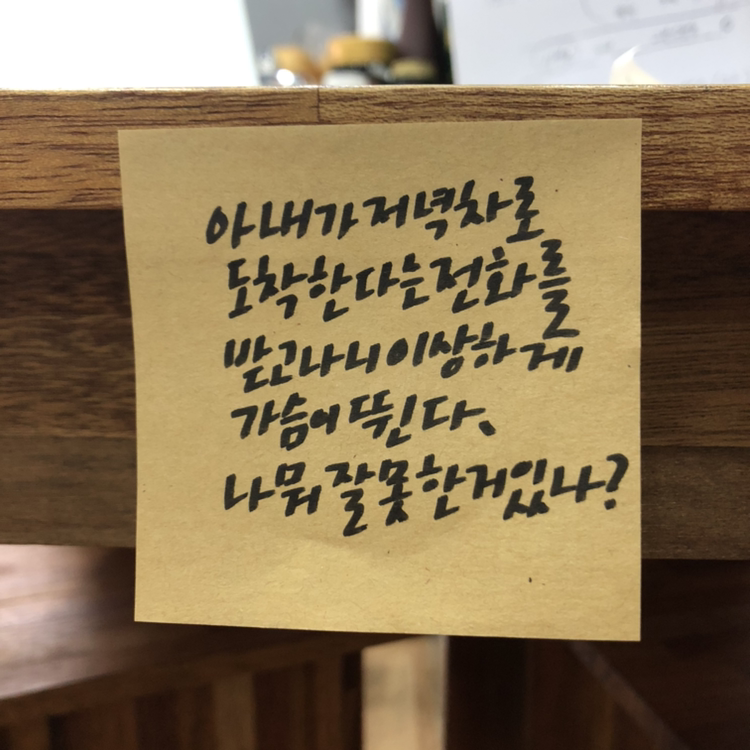 아내가 저녁차로
도착한다는 전화를
받고나니 이상하게
가슴이 뛴다.
나 뭐 잘못한거있나?